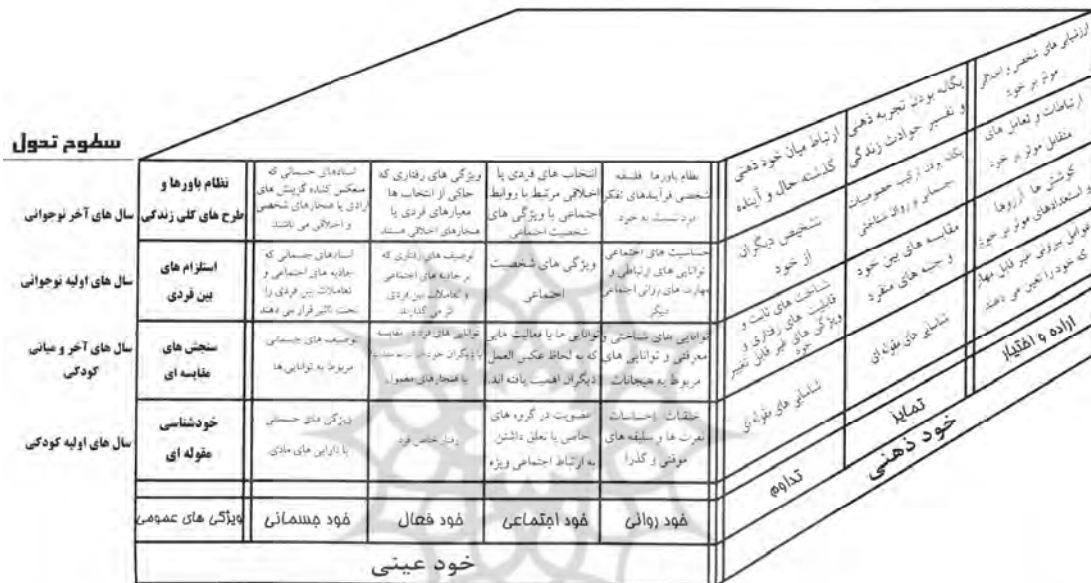 سطوح تحول
سال های آخر نوجوانی
سال های اولیه نوجوانی
سال های آخر و میانی
کودکی
سال های اولیه کودکی
نظام باورها و
طرح های کلی زندگی
اسنادهای جسمانی که
منعکس کننده گزینش های
ارادی یا هنجارهای شخصی
و اخلاقی می باشند
ویژگی های رفتاری که
حاکی از انتخاب ها
معیارهای فردی یا
هنجارهای اخلاقی هستند
انتخاب های فردی یا
اخلاقی مرتبط با روابط
اجتماعی یا ویژگی های
شخصیت اجتماعی
نظام باورها، فلسفه
شخصی فرآیندهای تفکر
فرد نسبت به خود
استلزام های
بین فردی
اسنادهای جسمانی که
جاذبه های اجتماعی و
تعاملات بین فردی را
تحت تاثیر قرار می دهند
توصیف های رفتاری که
بر جاذبه های اجتماعی
و تعاملات بین فردی
اثر می گذارند
ویژگی های شخصیت
اجتماعی
حساسیت های اجتماعی
توانایی های ارتباطی و
مهارت های روانی اجتماعی
دیگر
سنجش های
مقایسه ای
توصیف های جسمانی
مربوط به توانایی ها
توانایی های فرد در مقایسه
با دیگران خود
با هنجارهای معمول
توانایی ها یا فعالیت هایی
که به لحاظ عکس العمل
دیگران اهمیت یافته اند
توانایی های شناختی و
معرفتی و توانایی های
مربوط به هیجانات
خودشناسی
مقوله ای
ویژگی های جسمی
یا دارایی های مادی
رفتار خاص فرد
عضویت در گروه های
خاصی یا تعلق داشتن
به ارتباط اجتماعی ویژه
خلقیات، احساسات
نفرت ها و سلیقه های
موقتی و گذرا
ویژگی های عمومی
خود جسمانی
خود فعال
خود اجتماعی
خود روانی
خود عینی
ارتباط میان خود ذهنی
گذشته حال و آینده
تشخیص دیگران
از خود
شناخت های ثابت و
قابلیت های رفتاری و
ویژگی های غیر قابل تغییر
خود
شناسایی های مقوله ای
تداوم
یگانه بودن تجربه ذهنی
و تفسیر حوادث زندگی
یگانه بودن ترکیب خصوصیات
جسمانی و روان شناختی
مقایسه های بین خود
و جنبه های منفرد
شناسایی های مقوله ای
تمایز
ارزشیابی های شخصی و اخلاقی
موثر بر خود
ارتباطات و تعامل های
متقابل موثر بر خود
کوشش ها آرزوها
استعدادهای موثر بر خود
عوامل بیرونی غیر قابل مهار
که خود را تعین می دهند
اراده و اختیار
خود ذهنی